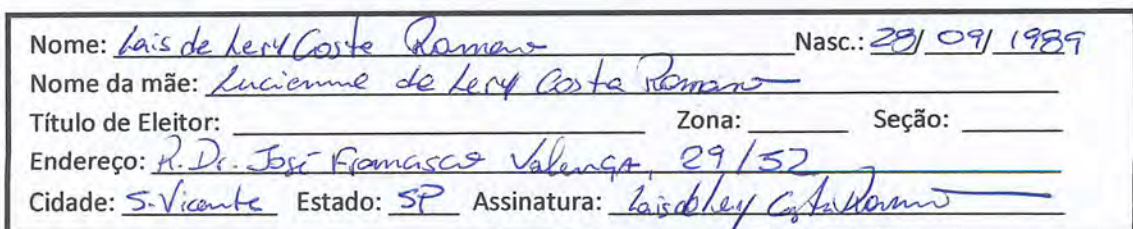 Nome: Lais de Lery Costa Romano Nasc.: 28/09/1989
Nome da mãe: Lucienne de Lery Costa Romano
Título de Eleitor: Zona: Seção:
Endereço: R. Dr. José Francisco Valença, 29/52
Cidade: S. Vicente Estado: SP Assinatura: Lais de Lery Costa Romano